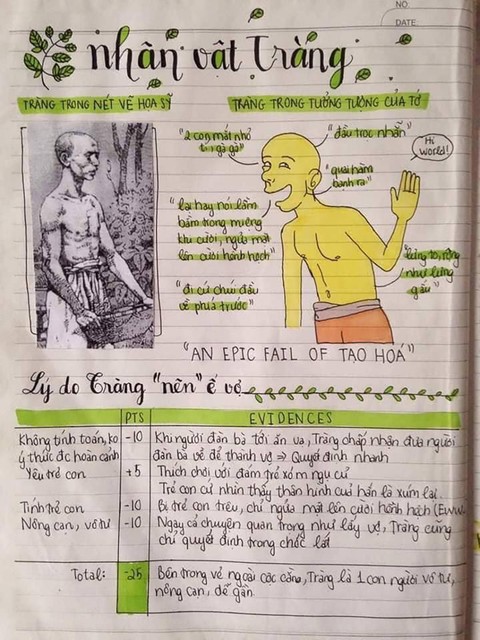 NO.
DATE
nhân vật Tràng
TRÀNG TRONG NÉT VẼ HỌA SỸ
TRÀNG TRONG TƯỞNG TƯỢNG CỦA TỚ
"2 con mắt nhỏ
tí, gà gà"
"đầu trọc nhẵn"
Hi
World!
"quai hàm
bạnh ra"
"lại hay nói lảm
bẩm trong miệng
khi cười, ngửa mặt
lên cười hềnh hệch"
"lưng to, rộng
như lưng
gấu"
"đi cứ chúi đầu
về phía trước"
"AN EPIC FAIL OF TẠO HOÁ"
Lý do Tràng "nên" ế vợ
PTS
EVIDENCES
Không tính toán, ko
ý thức đc hoàn cảnh
-10
Khi người đàn bà tới ăn vạ, Tràng chấp nhận đưa người
đàn bà về để thành vợ => Quyết định nhanh
Yêu trẻ con
+5
Thích chơi với đám trẻ xóm ngụ cư
Trẻ con cứ nhìn thấy thân hình của hắn là xúm lại.
Tính trẻ con
-10
Bị trẻ con trêu, chỉ ngửa mặt lên cười hềnh hệch (Eww
Nông cạn, vô tư
-10
Ngay cả chuyện quan trọng như lấy vợ, Tràng cũng
chỉ quyết định trong chốc lát
Total:
-25
Bên trong vẻ ngoài cộc cằn, Tràng là 1 con người vô tư,
nông cạn, dễ gần